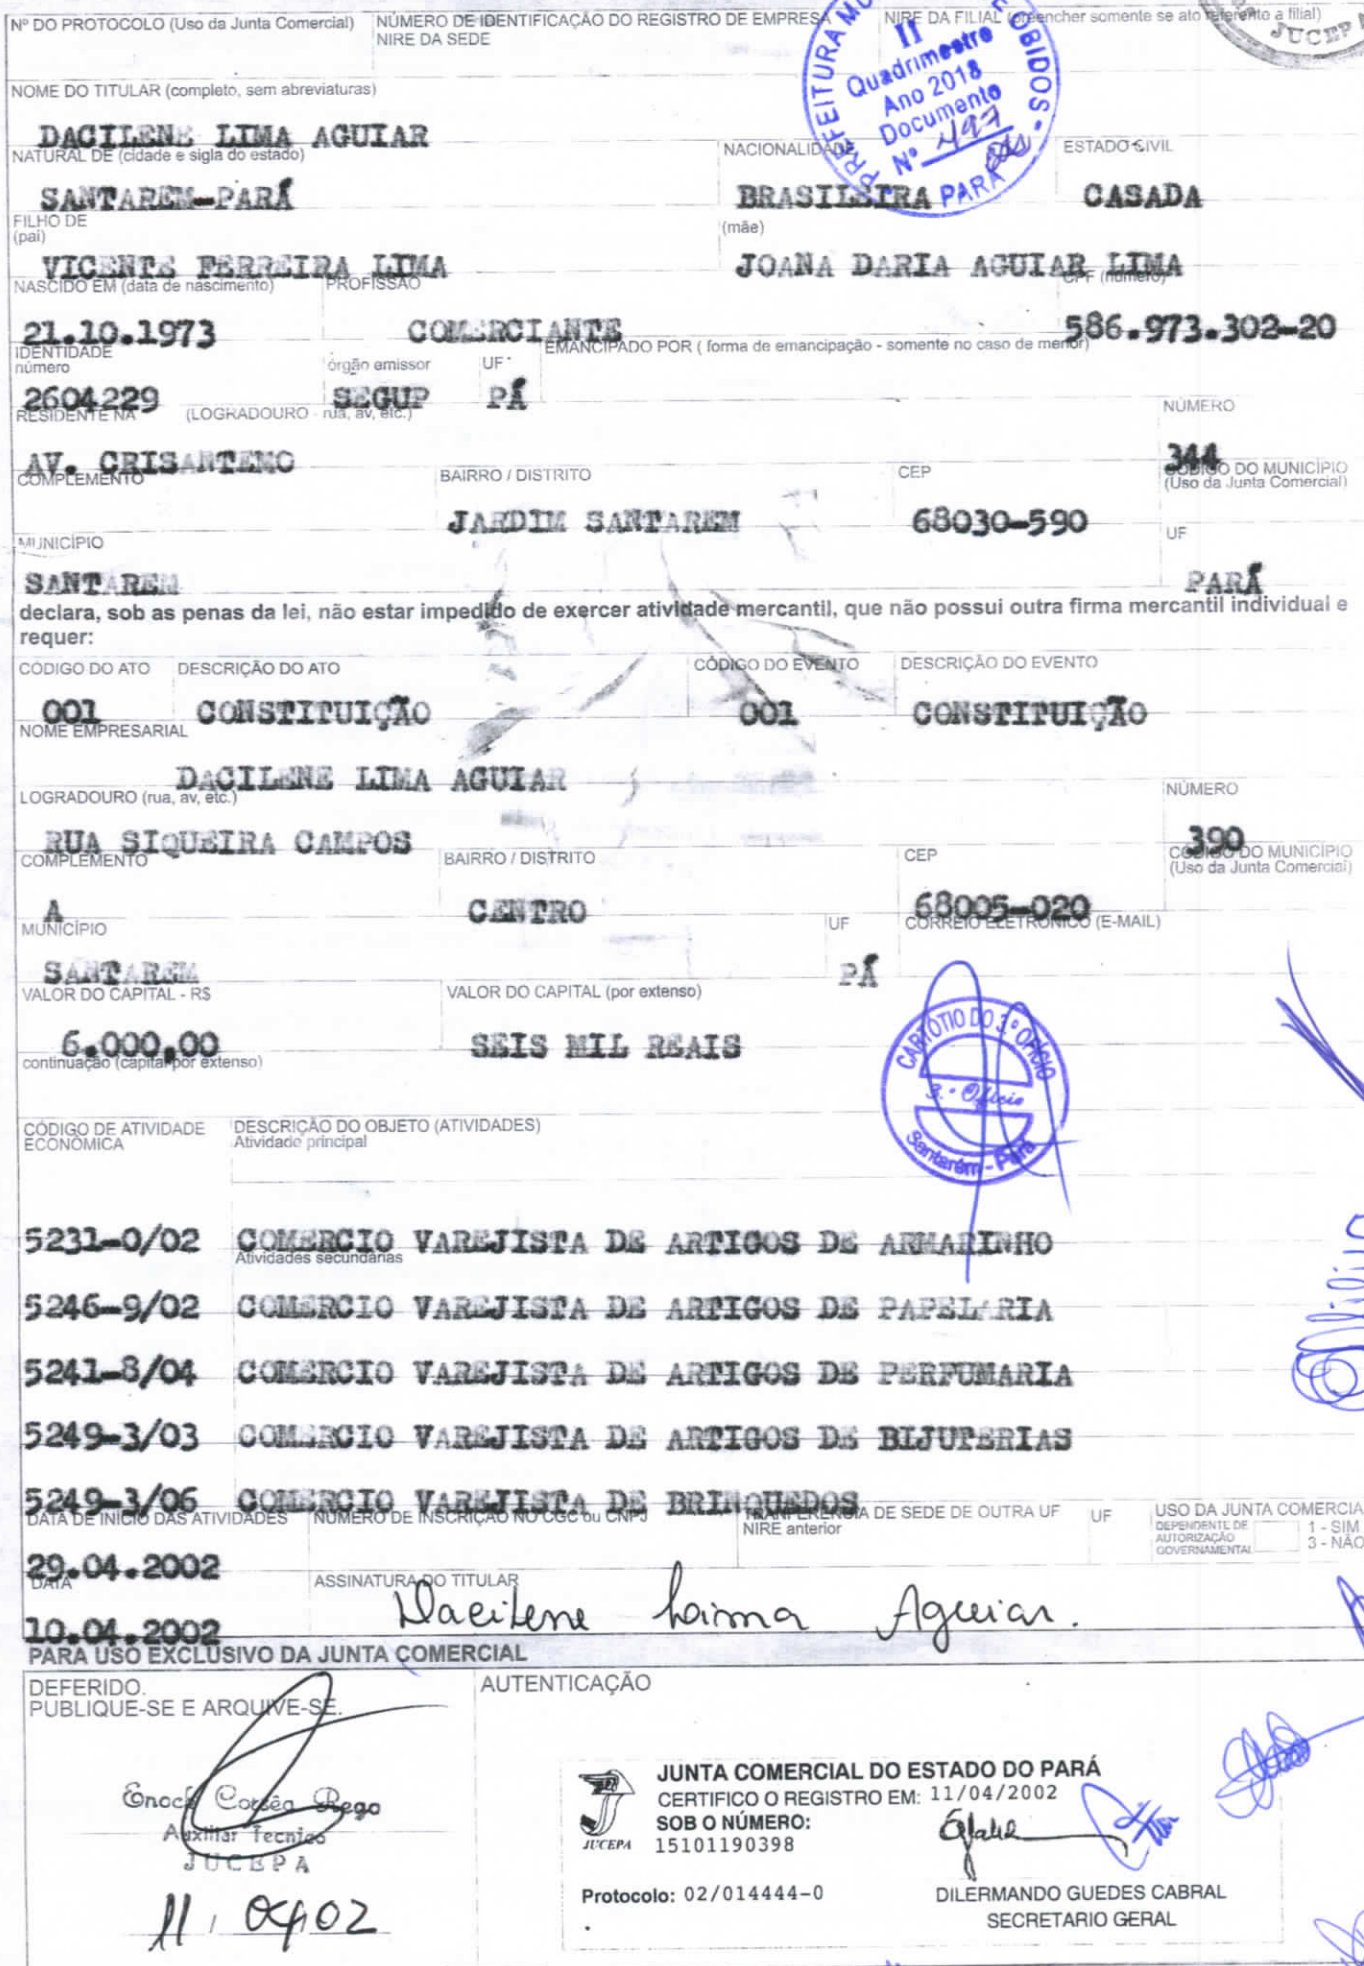 Nº DO PROTOCOLO (Uso da Junta Comercial)
NÚMERO DE IDENTIFICAÇÃO DO REGISTRO DE EMPRESA
NIRE DA SEDE
NIRE DA FILIAL (preencher somente se ato referente a filial)
JUCEP
PREFEITURA MU
OBIDOS -
PARÁ
II
Quadrimestre
Ano 2018
Documento
Nº 497
NOME DO TITULAR (completo, sem abreviaturas)
DACILENE LIMA AGUIAR
NATURAL DE (cidade e sigla do estado)
NACIONALIDADE
ESTADO CIVIL
SANTAREM-PARÁ
BRASILEIRA
CASADA
FILHO DE
(pai)
(mãe)
VICENTE FERREIRA LIMA
JOANA DARIA AGUIAR LIMA
NASCIDO EM (data de nascimento)
PROFISSÃO
CPF (número)
21.10.1973
COMERCIANTE
586.973.302-20
IDENTIDADE
número
órgão emissor
UF
EMANCIPADO POR ( forma de emancipação - somente no caso de menor)
2604229
SEGUP
PÁ
RESIDENTE NA
(LOGRADOURO - rua, av, etc.)
NÚMERO
AV. CRISANTEMO
344
COMPLEMENTO
BAIRRO / DISTRITO
CEP
CÓDIGO DO MUNICÍPIO
(Uso da Junta Comercial)
JARDIM SANTAREM
68030-590
MUNICÍPIO
UF
SANTAREM
PARÁ
declara, sob as penas da lei, não estar impedido de exercer atividade mercantil, que não possui outra firma mercantil individual e
requer:
CÓDIGO DO ATO
DESCRIÇÃO DO ATO
CÓDIGO DO EVENTO
DESCRIÇÃO DO EVENTO
001
CONSTITUIÇÃO
001
CONSTITUIÇÃO
NOME EMPRESARIAL
DACILENE LIMA AGUIAR
LOGRADOURO (rua, av, etc.)
NÚMERO
RUA SIQUEIRA CAMPOS
390
COMPLEMENTO
BAIRRO / DISTRITO
CEP
CÓDIGO DO MUNICÍPIO
(Uso da Junta Comercial)
A
CENTRO
68005-020
MUNICÍPIO
UF
CORREIO ELETRÔNICO (E-MAIL)
SANTAREM
PÁ
VALOR DO CAPITAL - R$
VALOR DO CAPITAL (por extenso)
6.000,00
SEIS MIL REAIS
continuação (capital por extenso)
CARTÓTIO DO 3.º OFÍCIO
3.º Ofício
Santarém - Pará
CÓDIGO DE ATIVIDADE
ECONÔMICA
DESCRIÇÃO DO OBJETO (ATIVIDADES)
Atividade principal
5231-0/02 COMERCIO VAREJISTA DE ARTIGOS DE ARMARINHO
Atividades secundárias
5246-9/02 COMERCIO VAREJISTA DE ARTIGOS DE PAPELARIA
5241-8/04 COMERCIO VAREJISTA DE ARTIGOS DE PERFUMARIA
5249-3/03 COMERCIO VAREJISTA DE ARTIGOS DE BIJUTERIAS
5249-3/06 COMERCIO VAREJISTA DE BRINQUEDOS
DATA DE INÍCIO DAS ATIVIDADES
NÚMERO DE INSCRIÇÃO NO CGC ou CNPJ
TRANFERÊNCIA DE SEDE DE OUTRA UF
NIRE anterior
UF
USO DA JUNTA COMERCIA
DEPENDENTE DE
AUTORIZAÇÃO
GOVERNAMENTAL
1 - SIM
3 - NÃO
29.04.2002
DATA
ASSINATURA DO TITULAR
10.04.2002
Dacilene Lima Aguiar.
PARA USO EXCLUSIVO DA JUNTA COMERCIAL
DEFERIDO.
PUBLIQUE-SE E ARQUIVE-SE.
AUTENTICAÇÃO
Enock Corrêa Rego
Auxiliar Tecnico
JUCEPA
11, 04, 02
JUCEPA
JUNTA COMERCIAL DO ESTADO DO PARÁ
CERTIFICO O REGISTRO EM: 11/04/2002
SOB O NÚMERO:
15101190398
Protocolo: 02/014444-0
DILERMANDO GUEDES CABRAL
SECRETARIO GERAL